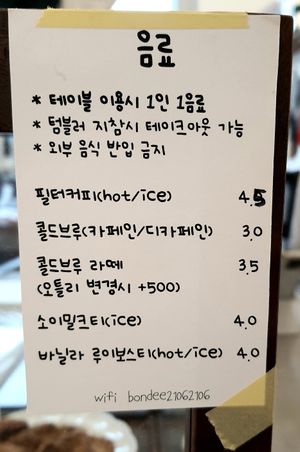 음료
* 테이블 이용시 1인 1음료
* 텀블러 지참시 테이크아웃 가능
* 외부 음식 반입 금지
필터커피(hot/ice) 4.5
콜드브루(카페인/디카페인) 3.0
콜드브루 라떼 3.5
(오틀리 변경시 +500)
소이밀크티(ice) 4.0
바닐라 루이보스티(hot/ice) 4.0
wifi bondee21062106